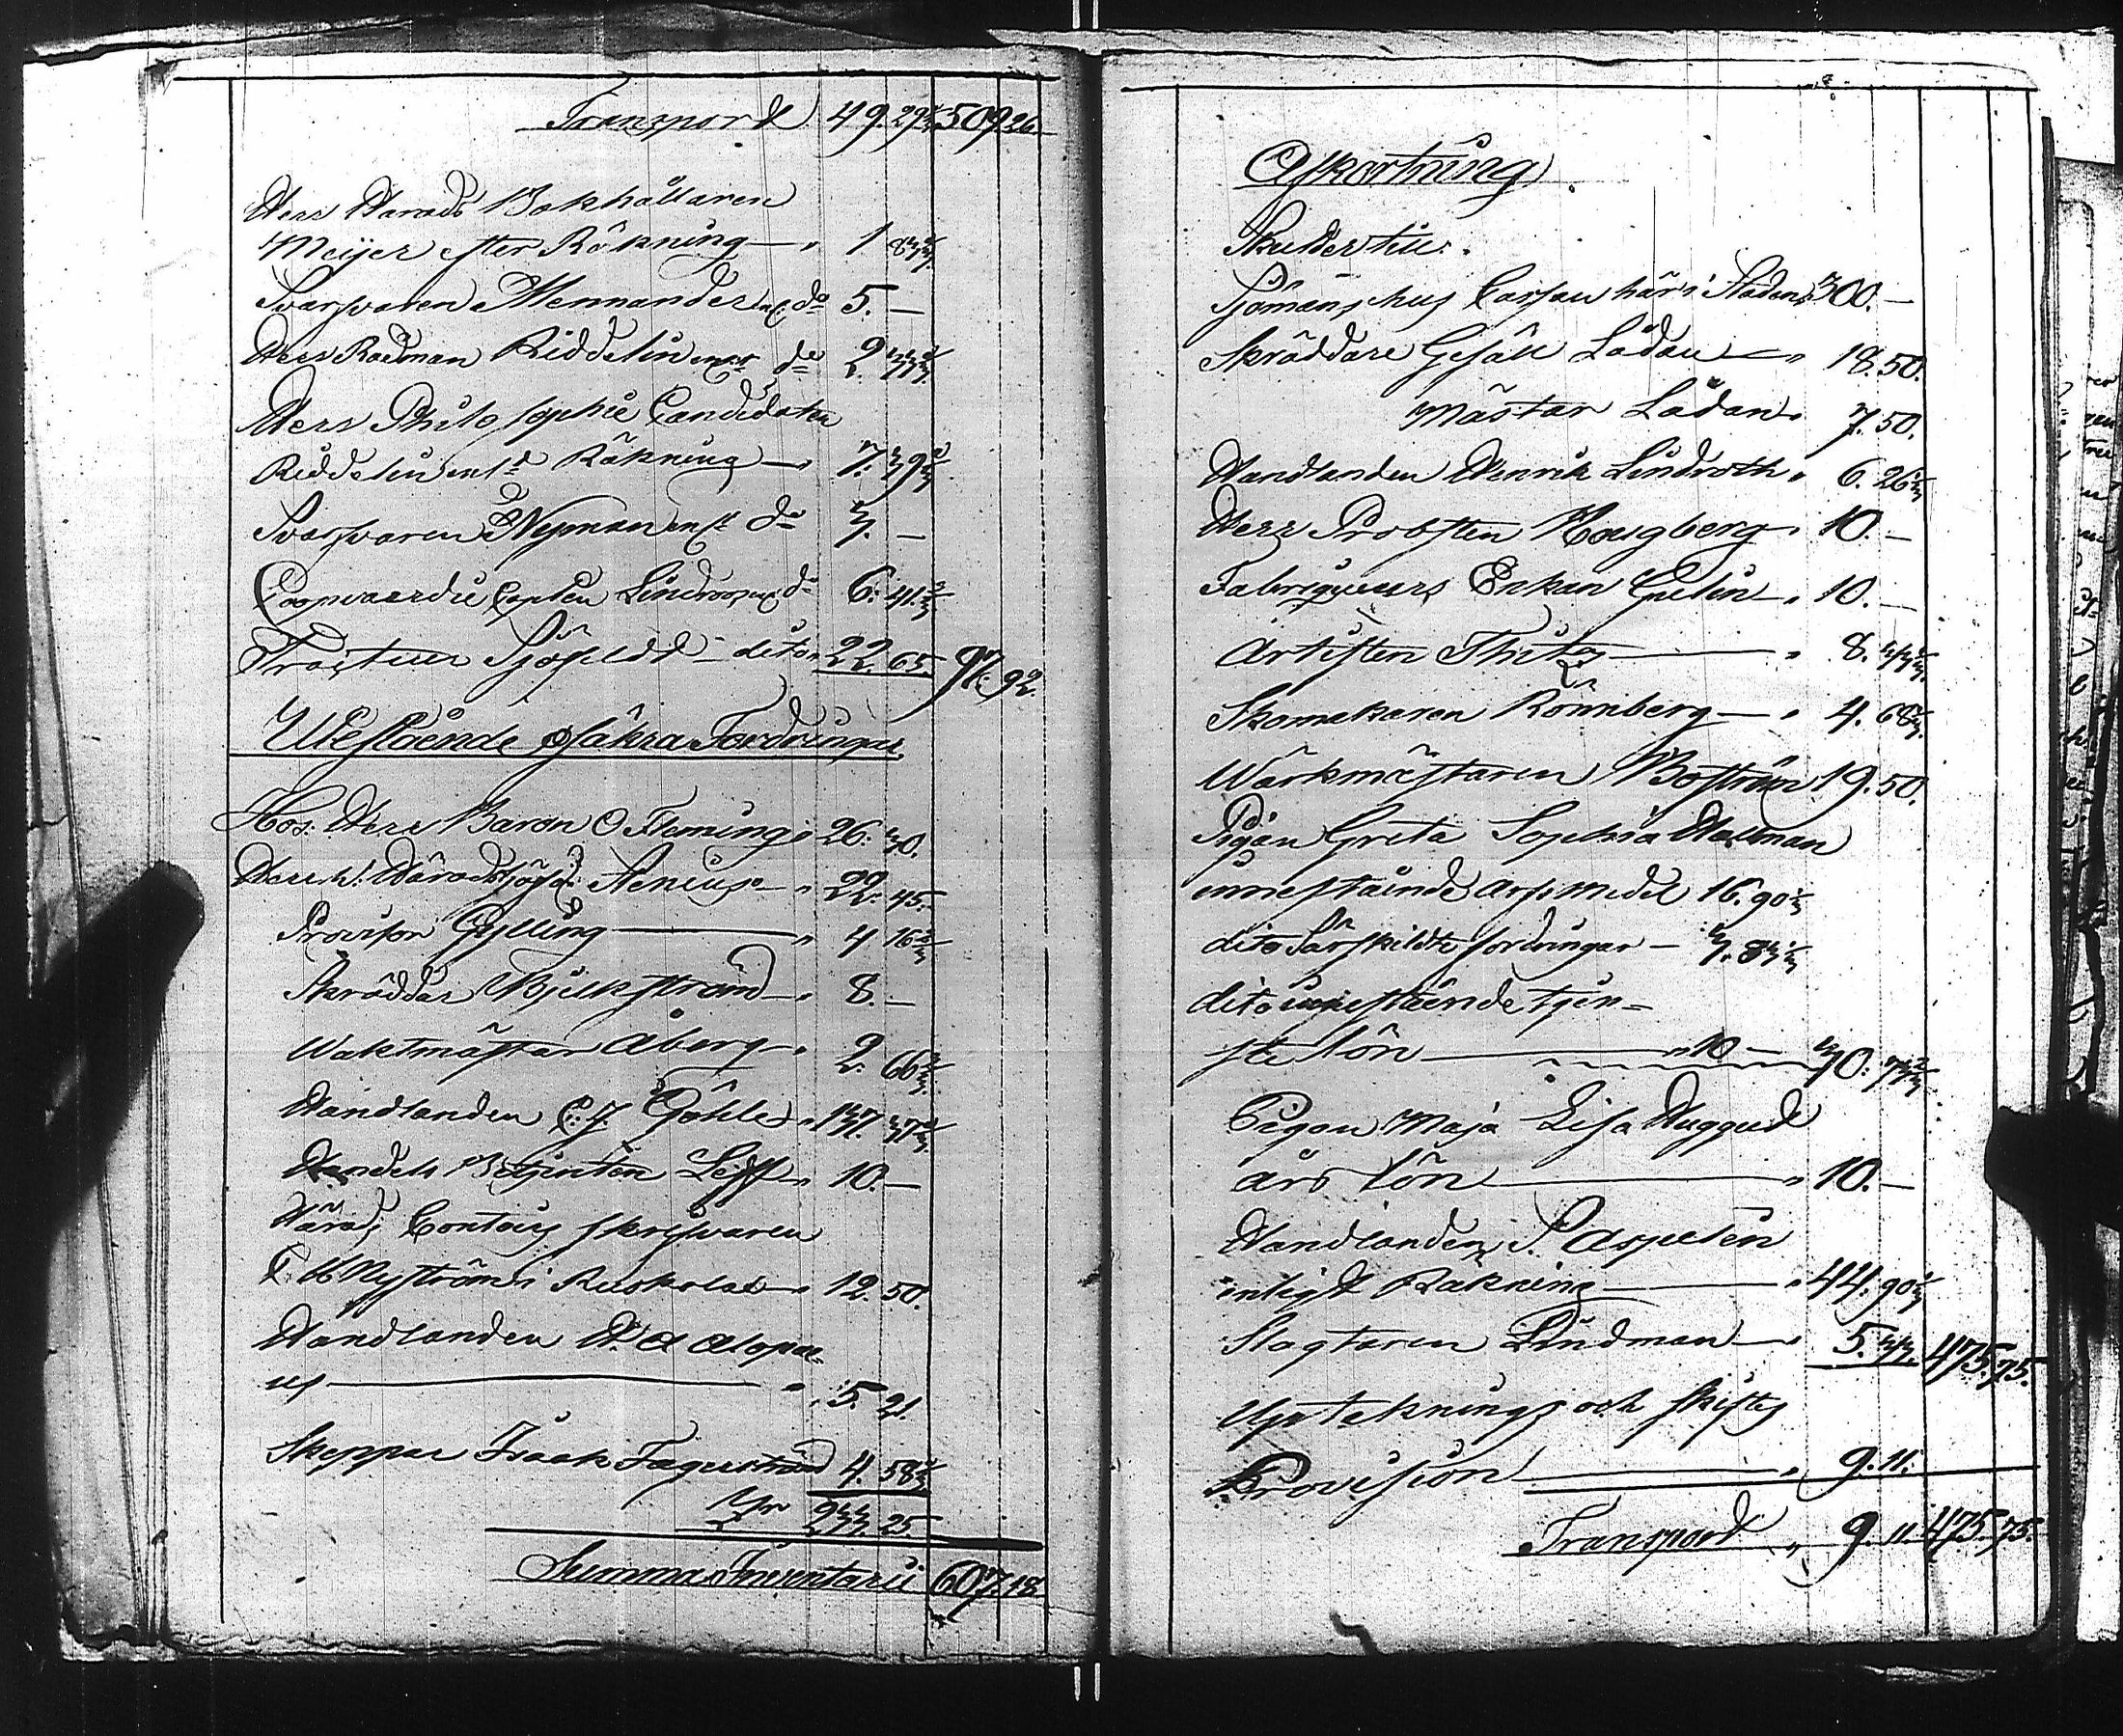 Transport 49. 29 1/3 509 26
Herr Harads Bokhållaren
Meijer efter Räkning — " 1 83 1/3
Svarfvaren Mennander enl. do 5. —
Herr Rådman Riddelin enligt do 2. 33 1/3
Herr Philosophie Candidaten
Riddelin enlt Räkning — " 7. 39 1/3
Svarfvaren Nyman enlt do 3. —
Coopvaerdie Capten Lindroos enl do 6. 41 2/3
Sjöfeldt — dito 22 65. 97. 92.
Utestående osäkra Fordringar
Hos: Herr Baron O Fleming " 26. 30.
Herr v. Häradshöfd: Aeneus — " 22. 45.
Provisor Gylling — " 4 16 2/3
Skräddar Bjelkström — " 8. —
Waktmästar Åberg — " 2. 66 2/3
Handlanden C. J. Göhle — " 137. 37 1/2
Handels Betjenten Leff — " 10. —
Härads Contoirs skrifvaren
C. W Nyström i Ruskolax — " 12. 50.
Handlanden D. A Alopae-
us — " 5. 21.
Skeppar Isaak Fagerström 4. 58 1/3
Rbr 233 25
Summa Inventarii 607. 18
Afkortning
Skulder till:
Sjömans hus Cassan här i Staden 300. —
Skräddare Gesäll Lådan — " 18. 50.
Mästar Lådan " 7. 50.
Handlanden Henrik Lindroth " 6. 26 1/3
Herr Probsten Hougberg " 10. —
Fabriqueurs Enkan Gelin — " 10. —
Artisten Thilez — " 8. 33 1/3
Skomakaren Rönnberg — " 4. 68 1/3
Wärkmästaren Boström 19. 50.
Pigan Greta Sophia Hallman
innestående Arfs medel 16. 90 1/3
dito Särskildte fordringar — 3. 83 1/3
dito innestående tjen-
ste lön — " 10 — 30. 73 2/3
Pigan Maja Lisa Huggud
års lön — " 10. —
Handlanden S. Aspelin
enligt Räkning — " 44. 90 1/3
Slagtaren Lindman — " 5. 33. 475. 75.
Uptecknings och skiftes
Provision — " 9. 11.
Transport " 9. 11. 475. 75.